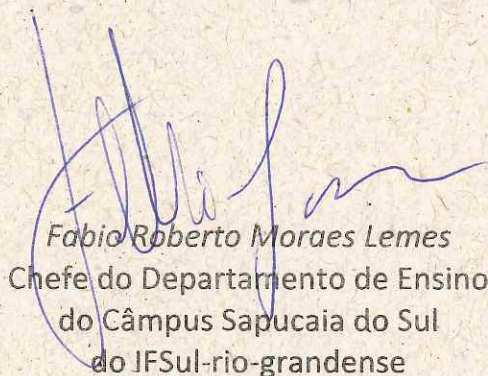 Fabio Roberto Moraes Lemes
Chefe do Departamento de Ensino
do Câmpus Sapucaia do Sul
do IFSul-rio-grandense